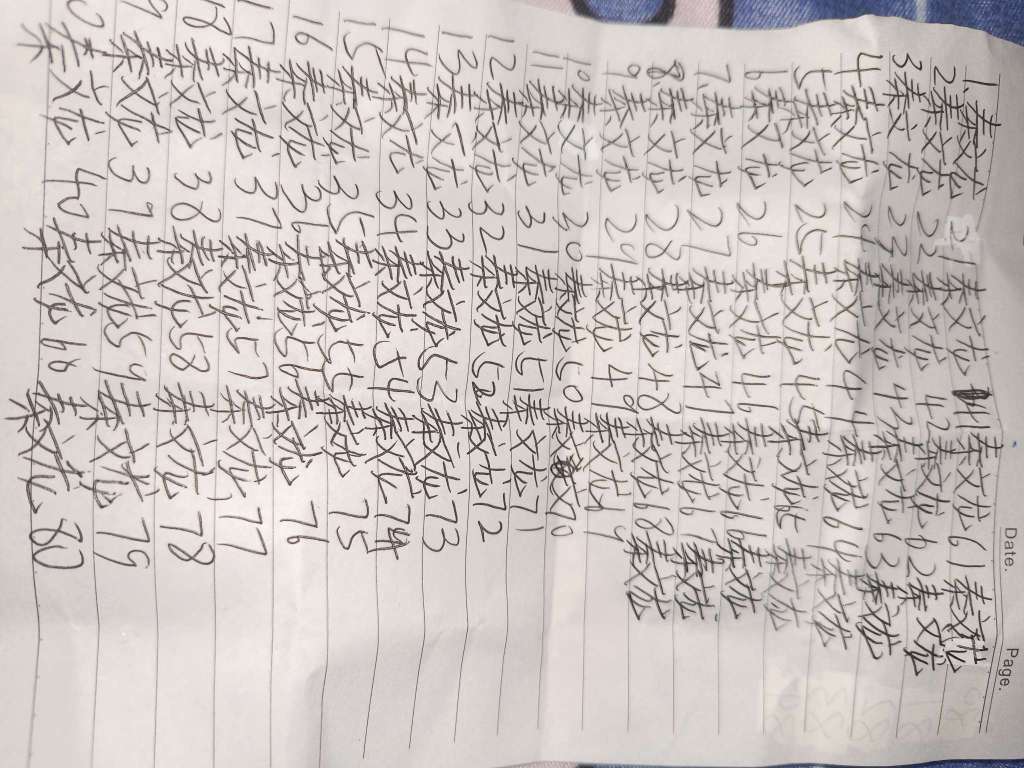 Date. Page.
1.秦文龙 21秦文龙 41秦文龙 61秦文龙
2秦文龙 22秦文龙 42秦文龙 62秦文龙
3秦文龙 23秦文龙 43秦文龙 63秦文龙
4秦文龙 24秦文龙 44秦文龙 64秦文龙
5秦文龙 25秦文龙 45秦文龙 65秦文龙
6秦文龙 26秦文龙 46秦文龙 66秦文龙
7.秦文龙 27秦文龙 47秦文龙 67秦文龙
8秦文龙 28秦文龙 48秦文龙 68秦文龙
9秦文龙 29秦文龙 49秦文龙 69
10秦文龙 30秦文龙 50秦文龙 70
11秦文龙 31秦文龙 51秦文龙 71
12秦文龙 32秦文龙 52秦文龙 72
13秦文龙 33秦文龙 53秦文龙 73
14秦文龙 34秦文龙 54秦文龙 74
15秦文龙 35秦文龙 55秦文龙 75
16秦文龙 36秦文龙 56秦文龙 76
17秦文龙 37秦文龙 57秦文龙 77
18秦文龙 38秦文龙 58秦文龙 78
19秦文龙 39秦文龙 59秦文龙 79
20秦文龙 40秦文龙 60秦文龙 80